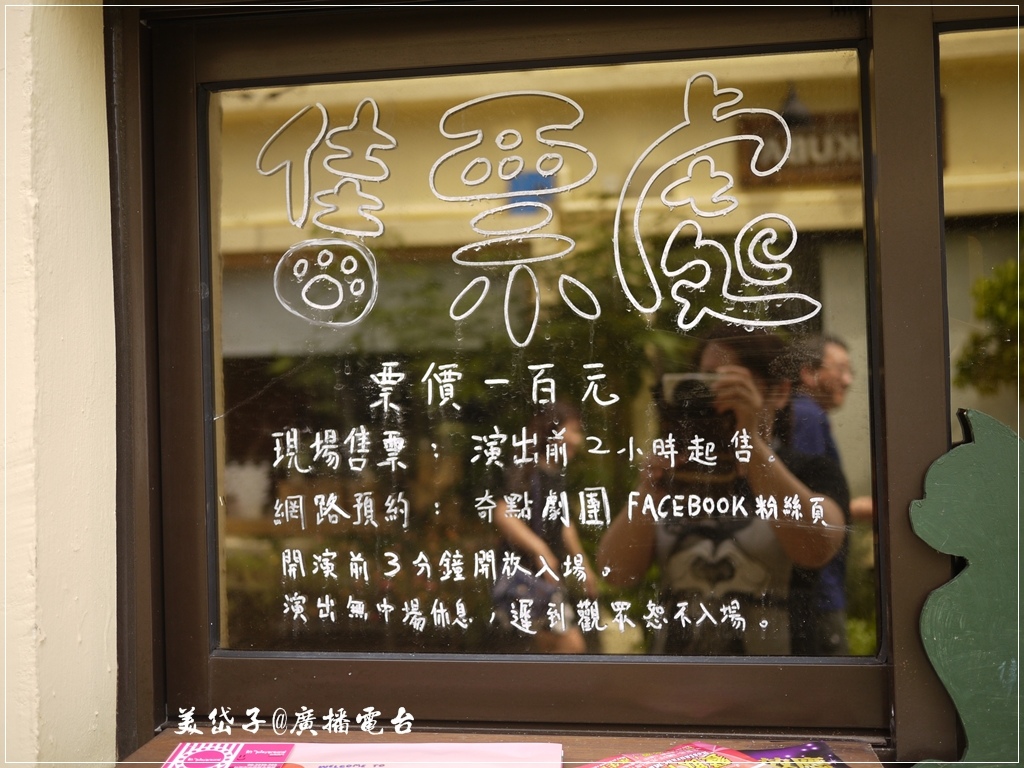 售票處
票價一百元
現場售票：演出前2小時起售。
網路預約：奇點劇團 FACEBOOK 粉絲頁
開演前3分鐘開放入場。
演出無中場休息，遲到觀眾恕不入場。
美岱子@廣播電台